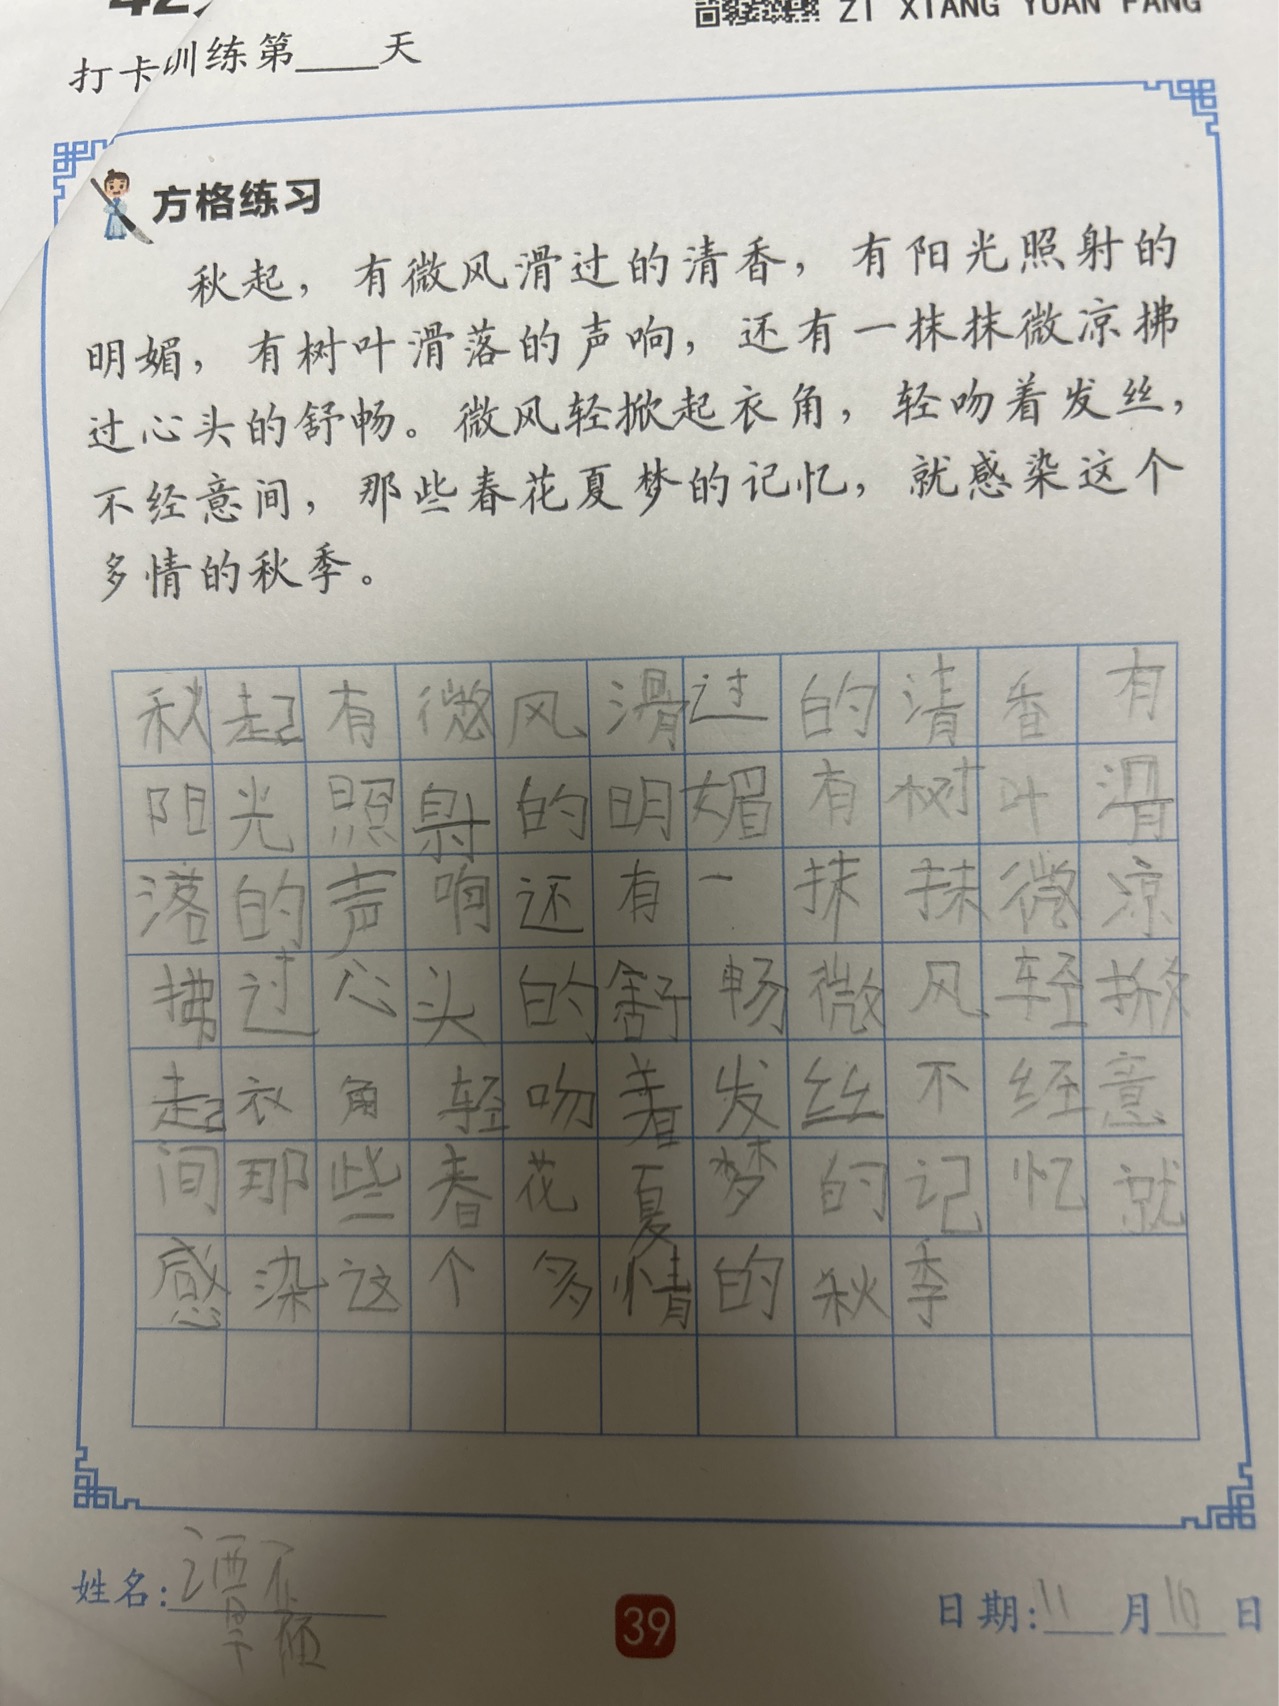 ZI XIANG YUAN FANG
打卡训练第____天
方格练习
秋起，有微风滑过的清香，有阳光照射的
明媚，有树叶滑落的声响，还有一抹抹微凉拂
过心头的舒畅。微风轻掀起衣角，轻吻着发丝，
不经意间，那些春花夏梦的记忆，就感染这个
多情的秋季。
秋起有微风滑过的清香有
阳光照射的明媚有树叶滑
落的声响还有一抹抹微凉
拂过心头的舒畅微风轻掀
起衣角轻吻着发丝不经意
间那些春花夏梦的记忆就
感染这个多情的秋季
姓名:谭
39
日期:11月10日